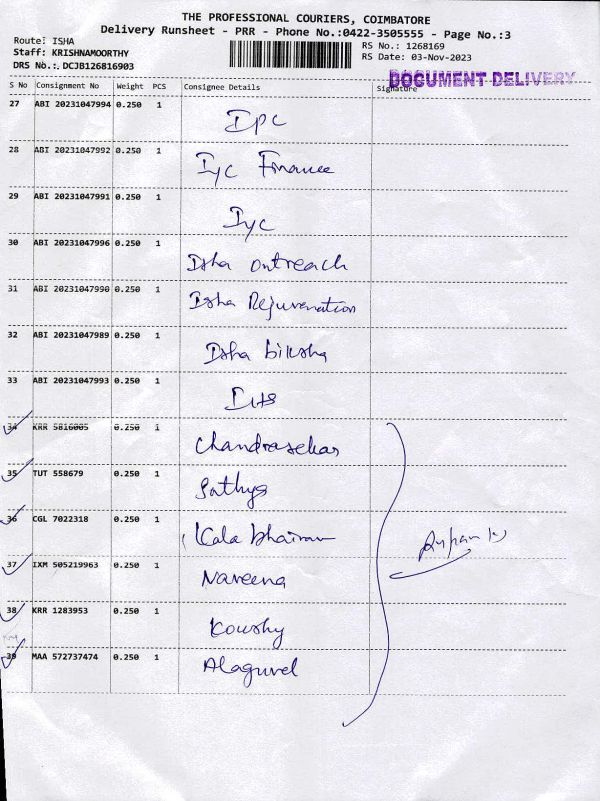 THE PROFESSIONAL COURIERS, COIMBATORE
Delivery Runsheet - PRR - Phone No.:0422-3505555 - Page No.:3
Route: ISHA
RS No.: 1268169
Staff: KRISHNAMOORTHY
RS Date: 03-Nov-2023
DRS No.: DCJB126816903
DOCUMENT DELIVERY
S No Consignment No Weight PCS Consignee Details Signature
27 ABI 20231047994 0.250 1 IPC
28 ABI 20231047992 0.250 1 Iyc Finance
29 ABI 20231047991 0.250 1 Iyc
30 ABI 20231047996 0.250 1 Isha outreach
31 ABI 20231047990 0.250 1 Isha Rejuvenation
32 ABI 20231047989 0.250 1 Isha biksha
33 ABI 20231047993 0.250 1
34 KRR 5816005 0.250 1 Chandrasekar
35 TUT 558679 0.250 1 Sathya
36 CGL 7022318 0.250 1 Kala bhairav
37 IXM 505219963 0.250 1 Naveena
38 KRR 1283953 0.250 1 Koushy
39 MAA 572737474 0.250 1 Alaguvel